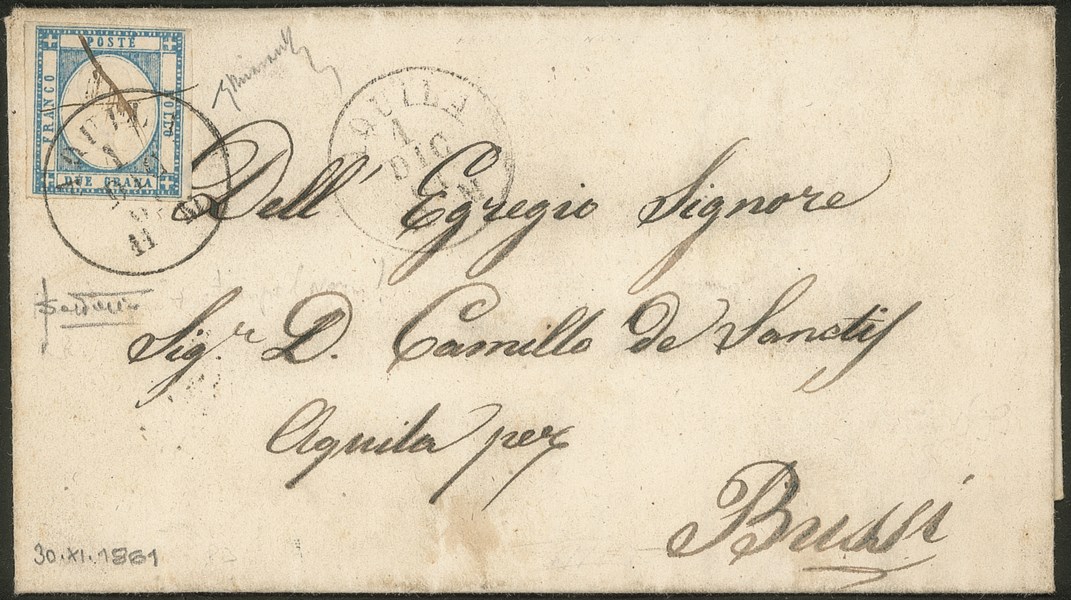 POSTE
FRANCO BOLLO
DUE GRANA
AQUILA
1
DIC
Dell' Egregio Signore
Sig.r D. Camillo de Sanctis
Aquila per
Bussi
30.XI.1861